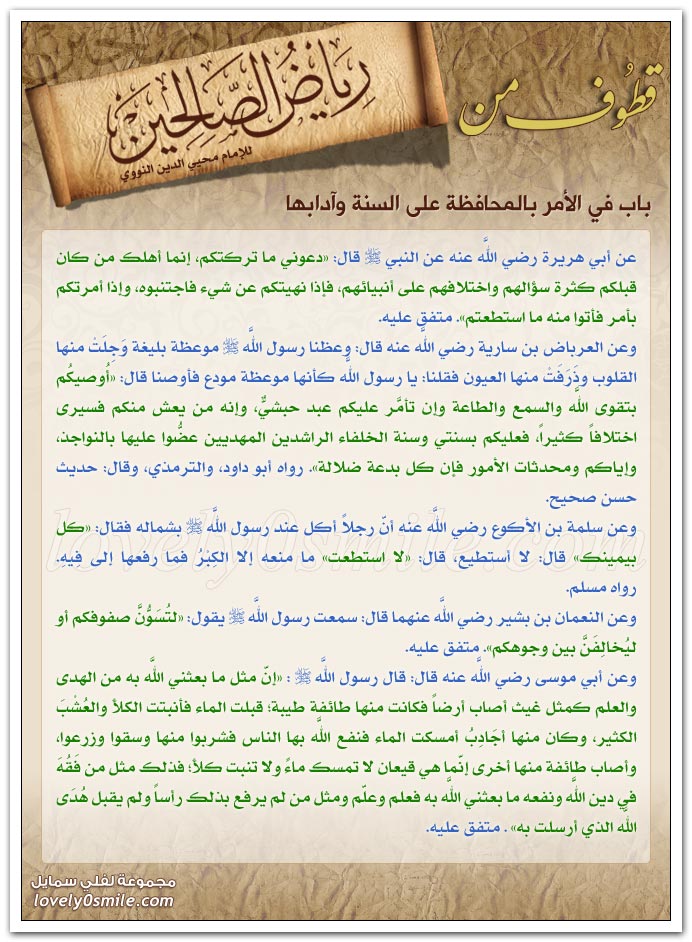 قطوف من
رياض الصالحين
للإمام محيي الدين النووي
باب في الأمر بالمحافظة على السنة وآدابها
عن أبي هريرة رضي اللَّه عنه عن النبي ﷺ قال: «دعوني ما تركتكم، إنما أهلك من كان
قبلكم كثرة سؤالهم واختلافهم على أنبيائهم، فإذا نهيتكم عن شيء فاجتنبوه، وإذا أمرتكم
بأمر فأتوا منه ما استطعتم». متفق عليه.
وعن العرباض بن سارية رضي اللَّه عنه قال: وعظنا رسول اللَّه ﷺ موعظة بليغة وَجِلَتْ منها
القلوب وذَرَفَتْ منها العيون فقلنا: يا رسول اللَّه كأنها موعظة مودع فأوصنا قال: «أُوصيكُم
بتقوى اللَّه والسمع والطاعة وإن تأمَّر عليكم عبد حبشيٌّ، وإنه من يعش منكم فسيرى
اختلافاً كثيراً، فعليكم بسنتي وسنة الخلفاء الراشدين المهديين عضُّوا عليها بالنواجذ،
وإياكم ومحدثات الأمور فإن كل بدعة ضلالة». رواه أبو داود، والترمذي، وقال: حديث
حسن صحيح.
وعن سلمة بن الأكوع رضي اللَّه عنه أنّ رجلاً أكل عند رسول اللَّه ﷺ بشماله فقال: «كل
بيمينك» قال: لا أستطيع، قال: «لا استطعت» ما منعه إلا الكِبْرُ فما رفعها إلى فِيهِ.
رواه مسلم.
وعن النعمان بن بشير رضي اللَّه عنهما قال: سمعت رسول اللَّه ﷺ يقول: «لتُسَوُّنَّ صفوفكم أو
ليُخالِفَنَّ بين وجوهكم». متفق عليه.
وعن أبي موسى رضي اللَّه عنه قال: قال رسول اللَّه ﷺ : «إنّ مثل ما بعثني اللَّه به من الهدى
والعلم كمثل غيث أصاب أرضاً فكانت منها طائفة طيبة؛ قبلت الماء فأنبتت الكلأ والعُشْبَ
الكثير، وكان منها أجَادِبُ أمسكت الماء فنفع اللَّه بها الناس فشربوا منها وسقوا وزرعوا،
وأصاب طائفة منها أخرى إنّما هي قيعان لا تمسك ماءً ولا تنبت كلأ؛ فذلك مثل من فَقُهَ
في دين اللَّه ونفعه ما بعثني اللَّه به فعلم وعلّم ومثل من لم يرفع بذلك رأساً ولم يقبل هُدَى
اللَّه الذي أرسلت به» . متفق عليه.
lovely0smile.com
مجموعة لفلي سمايل
lovely0smile.com